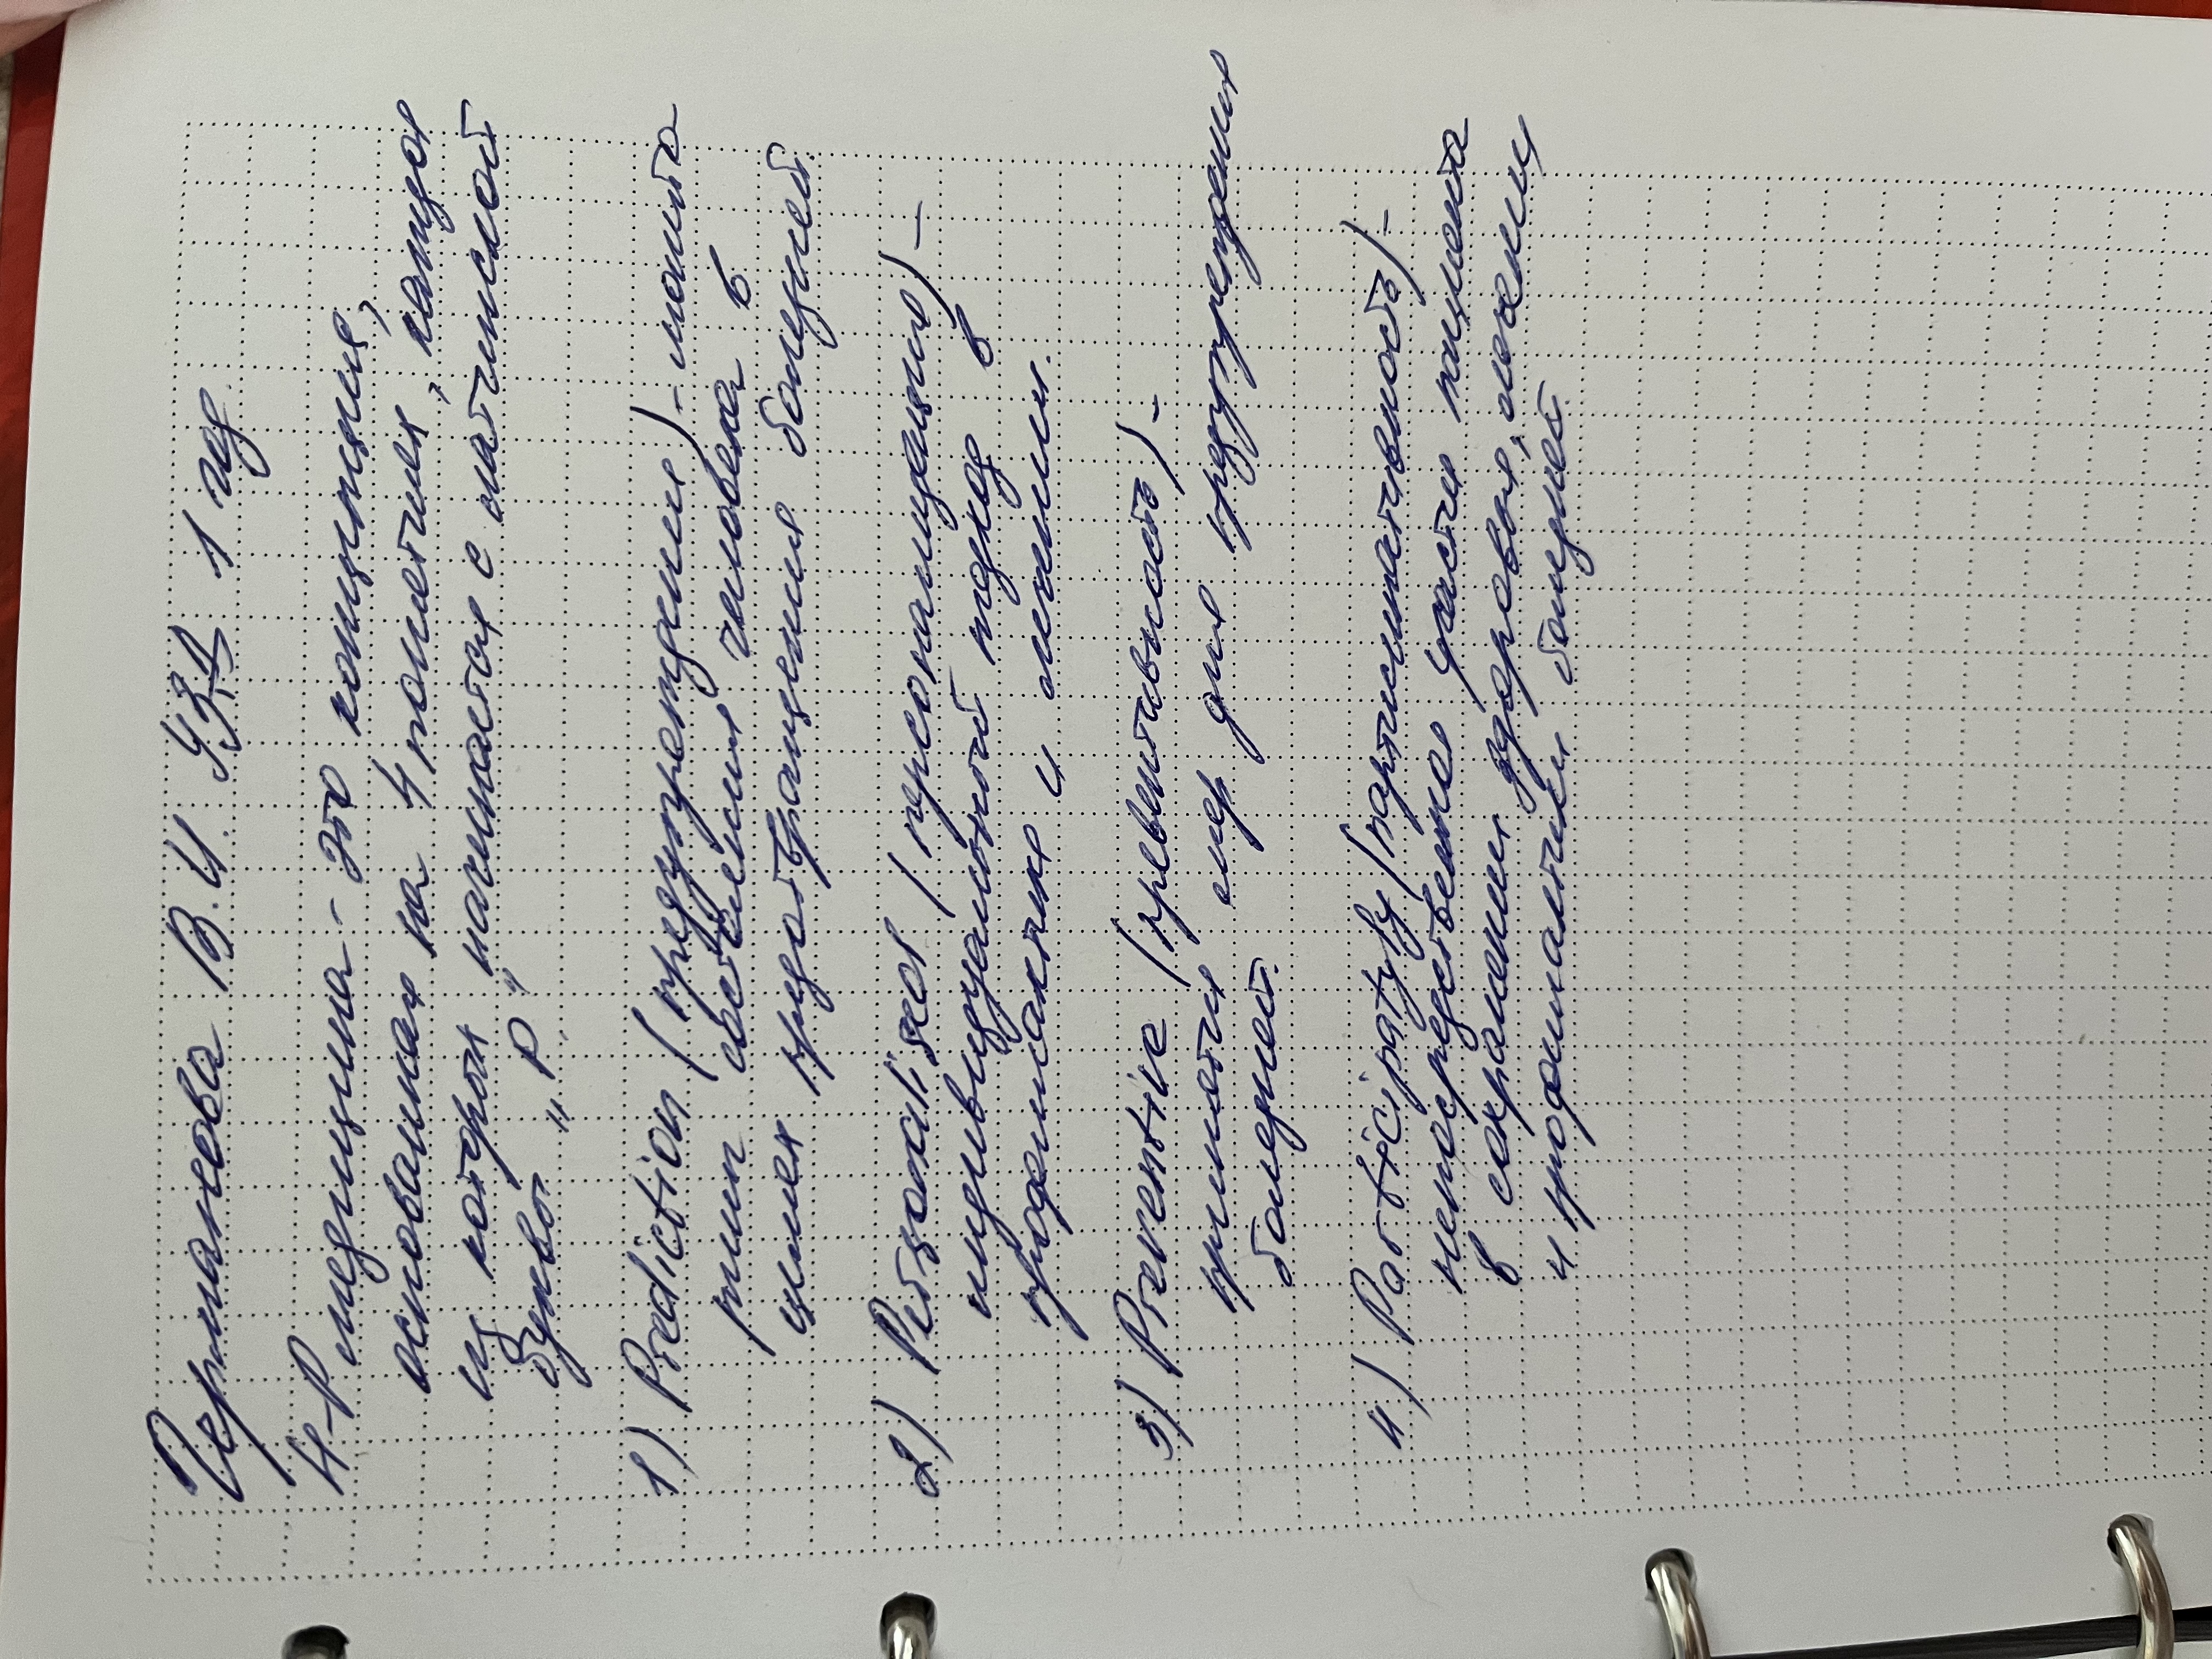 Германова В. И. УЗД 1 гр.
4-P медицина - это концепция,
основанная на 4 понятиях, каждая
из которых начинается с латинской
буквы "P".
1) Prediction (предупреждение) - монито
ринг состояния человека в
целях предотвращения болезней
2) Personalised (персонализация) -
индивидуальный подход в
профилактике и лечении.
3) Preventive (превентивность) -
принятие мер для предупреждения
болезней.
4) Participaty (партисипативность) -
непосредственное участие пациента
в сохранении здоровья, лечении
и профилактики болезней.